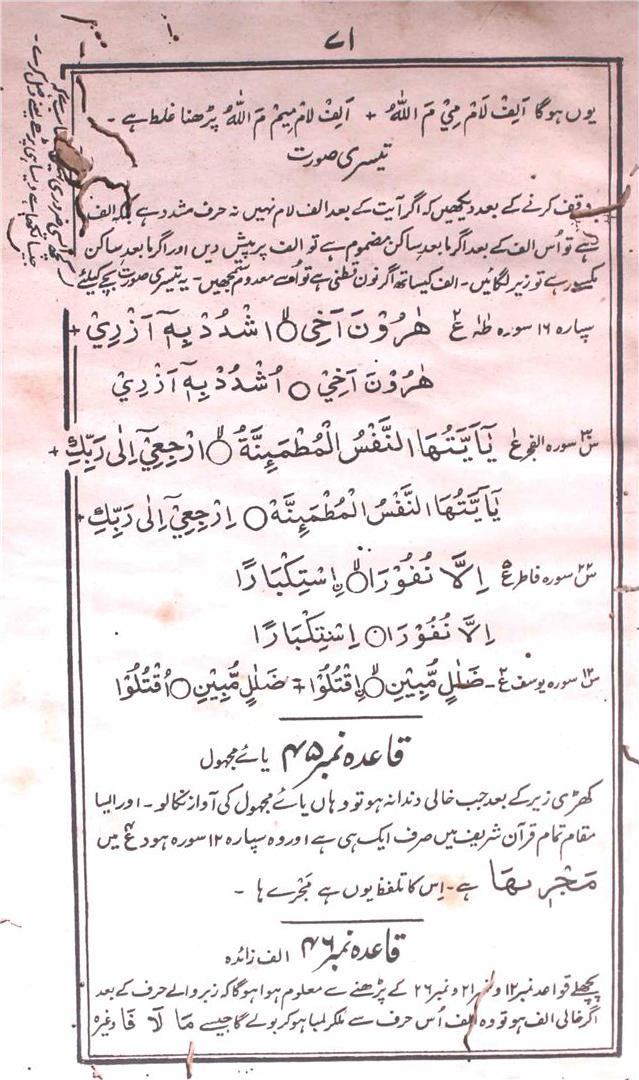 ۷۱
یوں ہوگا اَلِفْ لَامْ مِیْ مَ اللّٰہُ + اَلِفْ لَامْ مِیمْ مَ اللّٰہُ پڑھنا غلط ہے۔
تیسری صورت
وقف کرنے کے بعد دیکھیں کہ اگر آیت کے بعد الف لام نہیں نہ حرف مشدد ہے بلکہ الف
ہے تو اُس الف کے بعد اگر ما بعد ساکن مضموم ہے تو الف پر پیش دیں اور اگر ما بعد ساکن
مکسور ہے تو زیر لگائیں۔ الف کیساتھ اگر نون قطنی ہے تو اُسے معدوم سمجھیں۔ یہ تیسری صورت بچے کیلئے
سپارہ ۱۶ سورہ طٰہٰ ع۲ ھٰرُوْنَ اَخِی ۝ۙ اشْدُدْ بِہٖٓ اَزْرِیْ +
ھٰرُوْنَ اَخِیْ ۝ اُشْدُدْ بِہٖٓ اَزْرِیْ
س۳۰ سورہ الفجر ع۱ یٰٓاَیَّتُہَا النَّفْسُ الْمُطْمَئِنَّۃُ ۝ۙ ارْجِعِیْٓ اِلٰی رَبِّكِ +
یٰٓاَیَّتُہَا النَّفْسُ الْمُطْمَئِنَّہْ ۝ اِرْجِعِیْٓ اِلٰی رَبِّكِ +
س۲۲ سورہ فاطر ع۵ اِلَّا نُفُوْرَا ۝ۙ نِاسْتِكْبَارًا
اِلَّا نُفُوْرَا ۝ اِسْتِكْبَارًا
س۱۲ سورہ یوسف ع۲۔ ضَلٰلٍ مُّبِیْنِ ۝ۙ نِاقْتُلُوْا + ضَلٰلٍ مُّبِیْنِ ۝ اُقْتُلُوْا
قاعدہ نمبر ۴۵ یائے مجہول
کھڑی زیر کے بعد جب خالی دندانہ ہو تو وہاں یائے مجہول کی آواز نکالو۔ اور ایسا
مقام تمام قرآن شریف میں صرف ایک ہی ہے اور وہ سپارہ ۱۲ سورہ ہود ع۴ میں
مَجْرٖىھَا ہے۔ اِس کا تلفظ یوں ہے مَجْرے ہا۔
قاعدہ نمبر ۴۶ الف زائدہ
پچھلے قواعد نمبر ۱۲ و نمبر ۲۱ و نمبر ۲۶ کے پڑھنے سے معلوم ہوا ہوگا کہ زبر والے حرف کے بعد
اگر خالی الف ہو تو وہ الف اُس حرف سے ملکر لمبا ہو کر بولے گا جیسے مَا لَا فَا وغیرہ